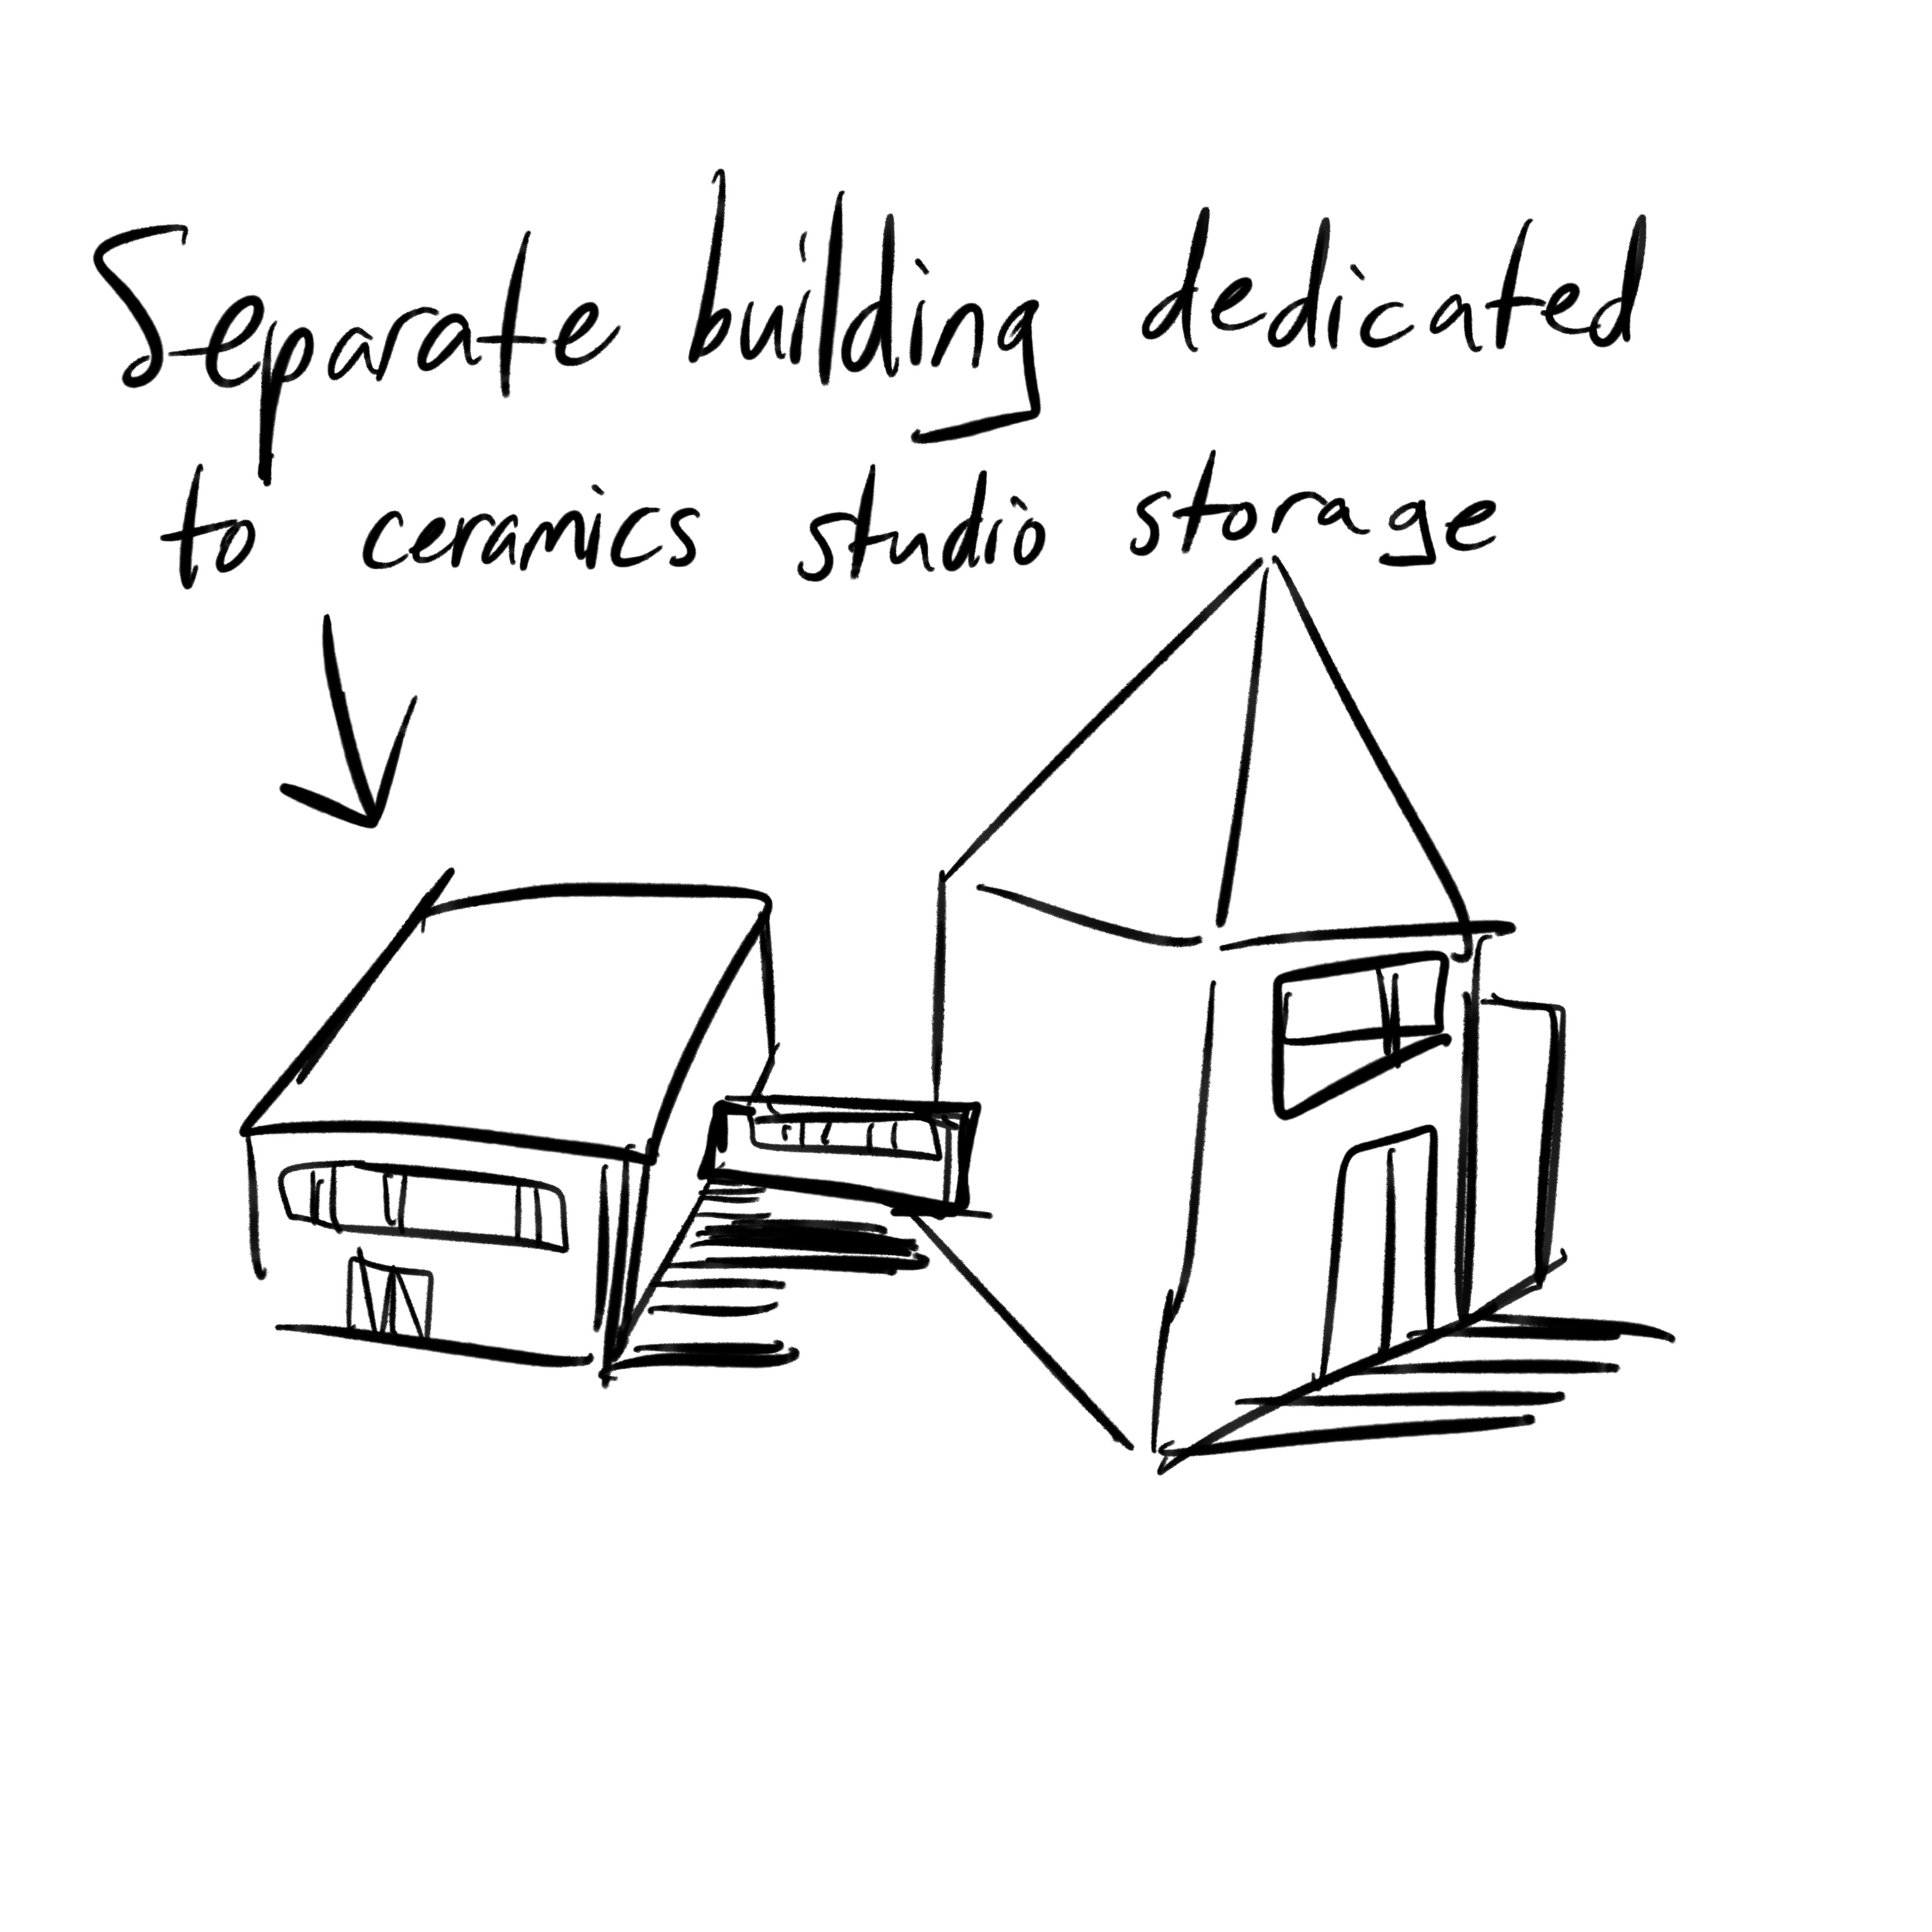 Separate building dedicated
to ceramics studio storage